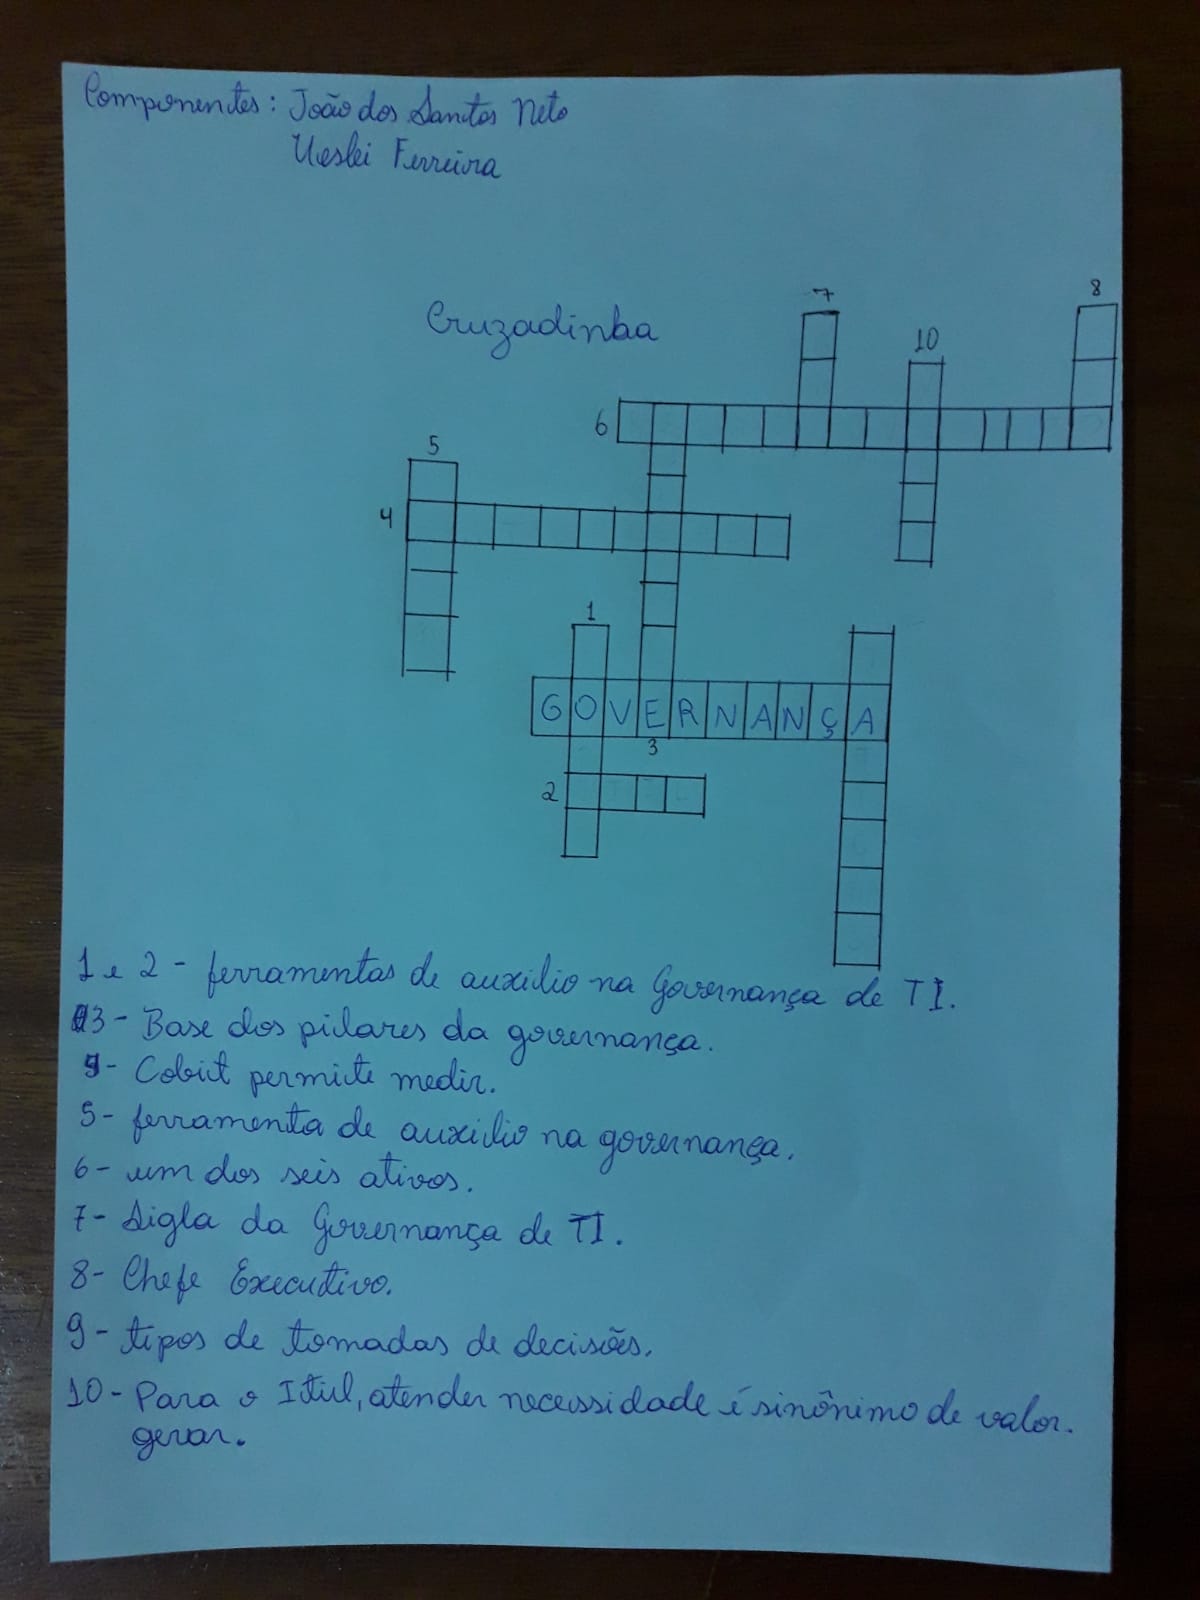 Componentes: João dos Santos Neto
Ueslei Ferreira
Cruzadinha
7
8
10
6
5
4
1
GOVERNANÇA
3
2
1 e 2 - ferramentas de auxilio na Governança de TI.
3 - Base dos pilares da governança.
4 - Cobit permite medir.
5 - ferramenta de auxilio na governança.
6 - um dos seis ativos.
7 - Sigla da Governança de TI.
8 - Chefe Executivo.
9 - tipos de tomadas de decisões.
10 - Para o Itil, atender necessidade é sinônimo de valor.
gerar.